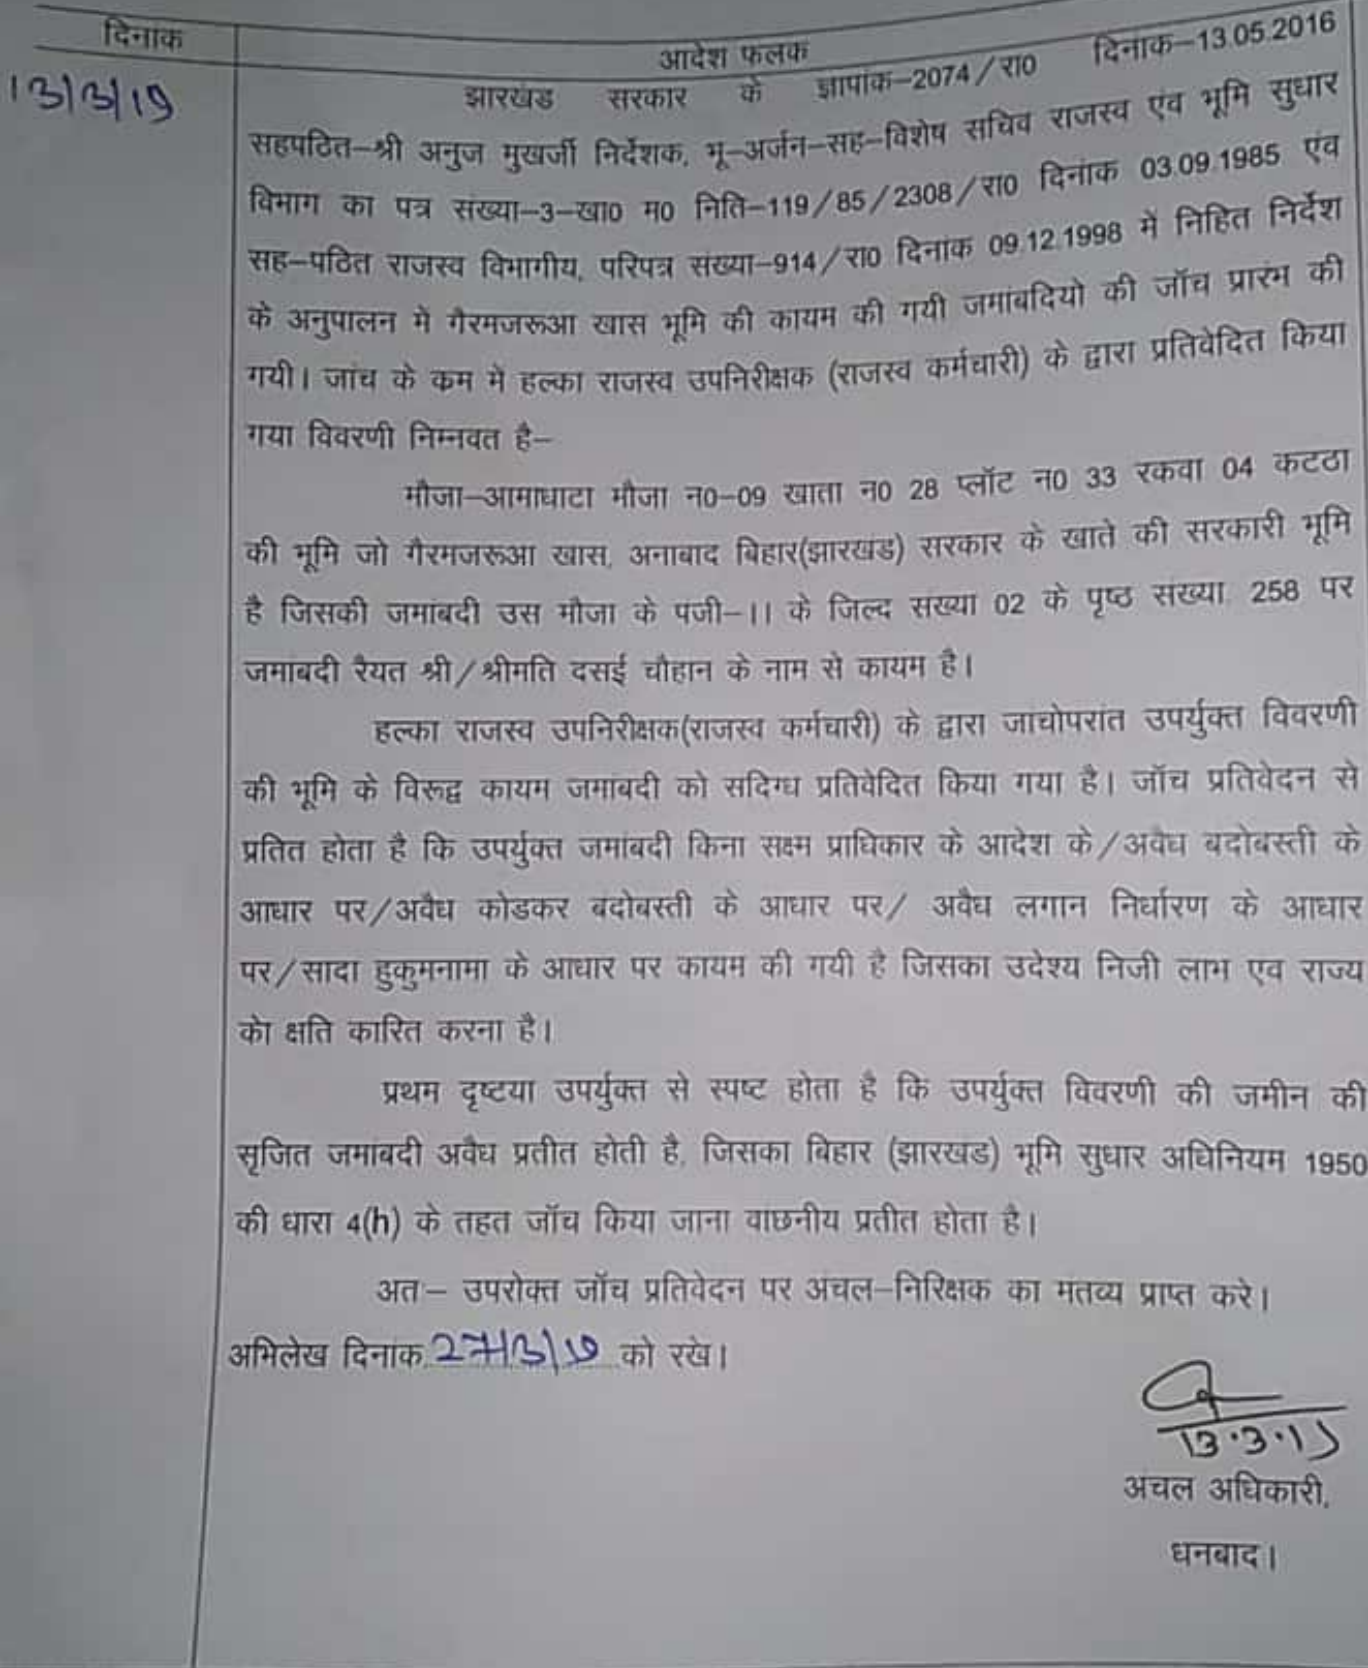 दिनांक
आदेश फलक
13/3/19
झारखंड सरकार के ज्ञापांक-2074/रा0 दिनांक-13.05.2016
सहपठित-श्री अनुज मुखर्जी निर्देशक, भू-अर्जन-सह-विशेष सचिव राजस्व एंव भूमि सुधार
विभाग का पत्र संख्या-3-खा0 म0 निति-119/85/2308/रा0 दिनांक 03.09.1985 एंव
सह-पठित राजस्व विभागीय, परिपत्र संख्या-914/रा0 दिनांक 09.12.1998 में निहित निर्देश
के अनुपालन में गैरमजरूआ खास भूमि की कायम की गयी जमांबदियो की जॉच प्रारंम की
गयी। जांच के कम में हल्का राजस्व उपनिरीक्षक (राजस्व कर्मचारी) के द्वारा प्रतिवेदित किया
गया विवरणी निम्नवत है-
मौजा-आमाघाटा मौजा न0-09 खाता न0 28 प्लॉट न0 33 रकवा 04 कटठा
की भूमि जो गैरमजरूआ खास, अनाबाद बिहार(झारखंड) सरकार के खाते की सरकारी भूमि
है जिसकी जमांबदी उस मौजा के पंजी-।। के जिल्द संख्या 02 के पृष्ठ संख्या 258 पर
जमांबदी रैयत श्री/श्रीमति दसई चौहान के नाम से कायम है।
हल्का राजस्व उपनिरीक्षक(राजस्व कर्मचारी) के द्वारा जांचोपरांत उपर्युक्त विवरणी
की भूमि के विरूद्व कायम जमांबदी को सदिग्ध प्रतिवेदित किया गया है। जॉच प्रतिवेदन से
प्रतित होता है कि उपर्युक्त जमांबदी किना सक्ष्म प्राधिकार के आदेश के/अवैध बदोबस्ती के
आधार पर/अवैध कोडकर बंदोबस्ती के आधार पर/ अवैध लगान निर्धारण के आधार
पर/सादा हुकुमनामा के आधार पर कायम की गयी है जिसका उदेश्य निजी लाभ एव राज्य
को क्षति कारित करना है।
प्रथम दृष्टया उपर्युक्त से स्पष्ट होता है कि उपर्युक्त विवरणी की जमीन की
सृजित जमांबदी अवैध प्रतीत होती है, जिसका बिहार (झारखंड) भूमि सुधार अधिनियम 1950
की धारा 4(h) के तहत जॉच किया जाना वांछनीय प्रतीत होता है।
अत- उपरोक्त जॉच प्रतिवेदन पर अंचल-निरिक्षक का मंतव्य प्राप्त करे।
अभिलेख दिनांक 27/3/19 को रखे।
13.3.19
अंचल अधिकारी,
धनबाद।